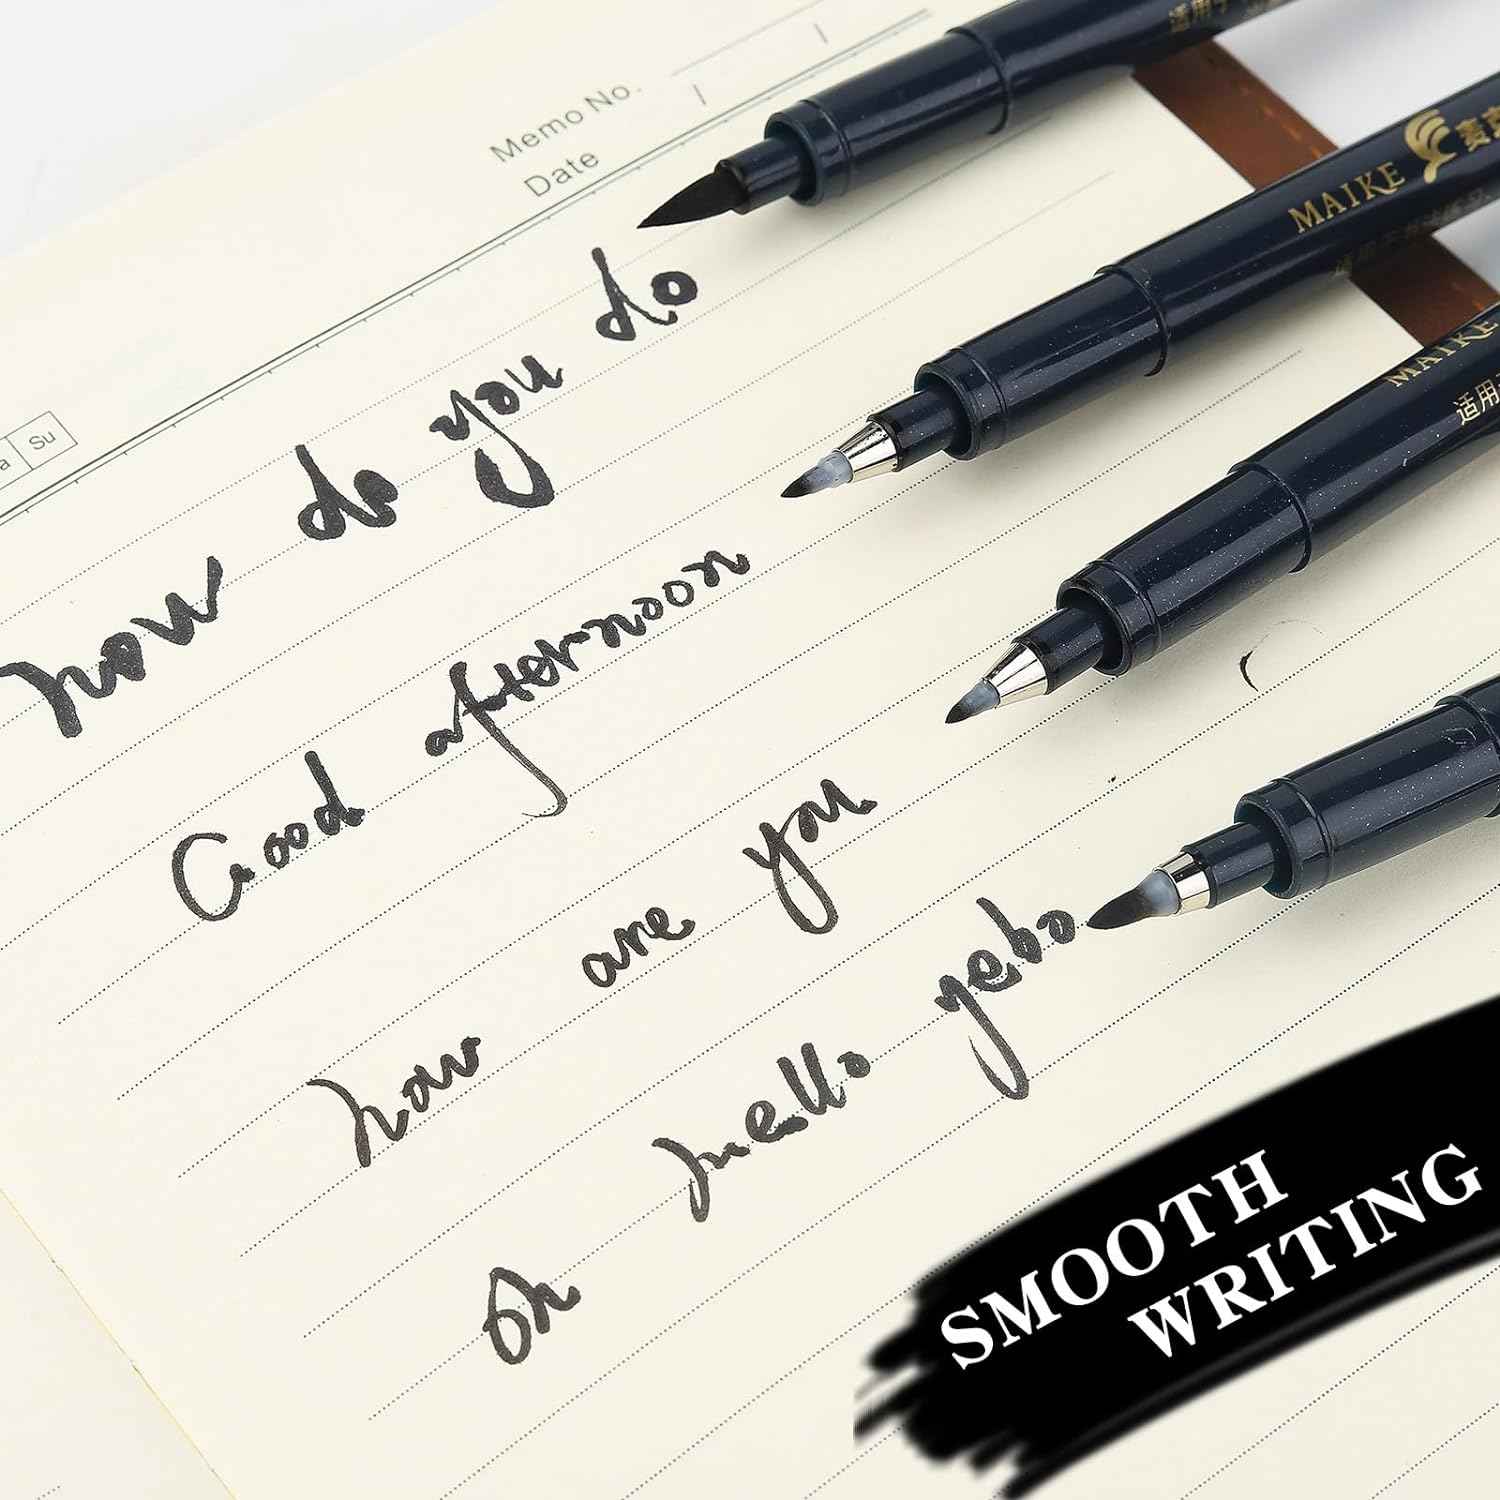 Memo No.
Date / /
Su
适用于
MAIKE
MAIKE
适用
how do you do
Good afternoon
how are you
oh hello yebo
SMOOTH
WRITING